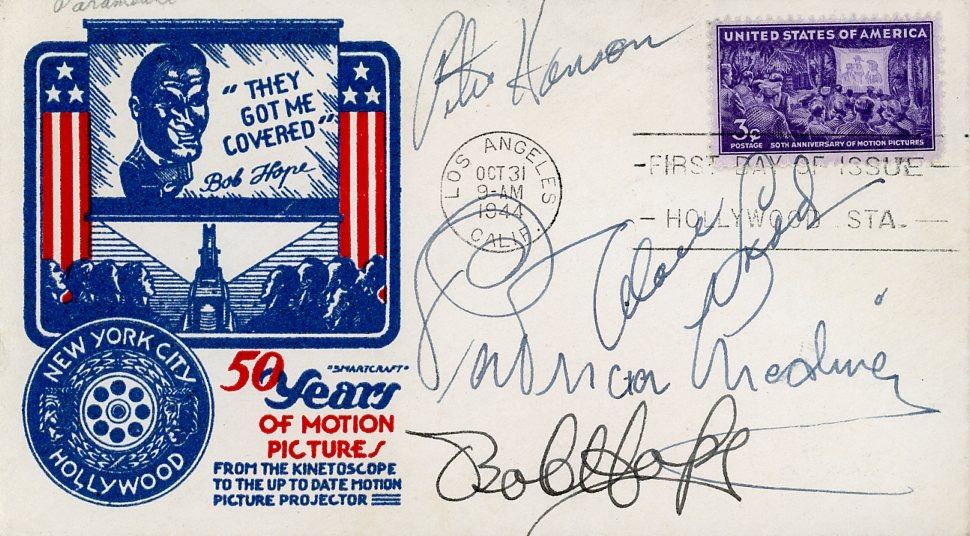 Paramount
"THEY
GOT ME
COVERED"
Bob Hope
NEW YORK CITY
HOLLYWOOD
50 "SMARTCRAFT"
Years
OF MOTION
PICTURES
FROM THE KINETOSCOPE
TO THE UP TO DATE MOTION
PICTURE PROJECTOR
Peter Hanson
UNITED STATES OF AMERICA
3¢
POSTAGE 50TH ANNIVERSARY OF MOTION PICTURES
LOS ANGELES
OCT 31
9-AM
1944
CALIF.
-FIRST DAY OF ISSUE-
-HOLLYWOOD STA.-
Alan Ladd
Patricia Medina
Bob Hope